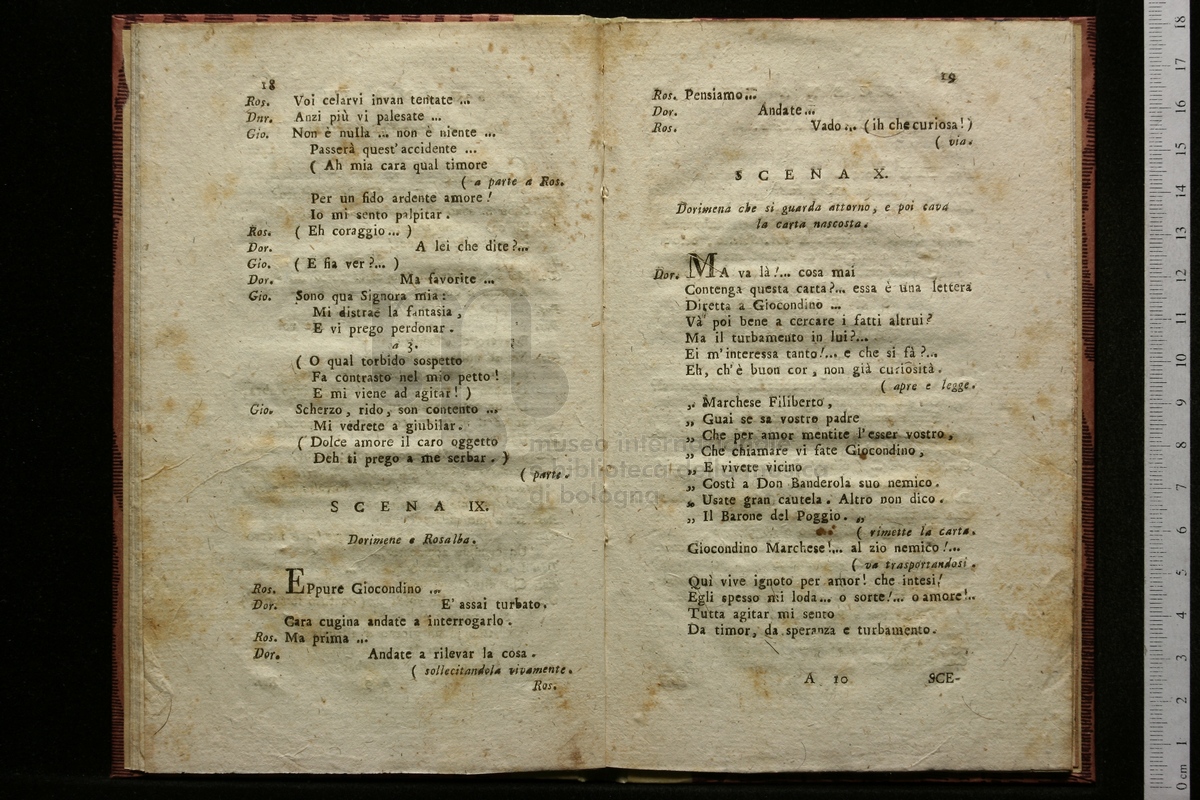 18
Ros. Voi celarvi invan tentate ...
Dnr. Anzi più vi palesate ...
Gio. Non è nulla ... non è niente ...
Passerà quest' accidente ...
( Ah mia cara qual timore
( a parte a Ros.
Per un fido ardente amore !
Io mi sento palpitar .
Ros. ( Eh coraggio ... )
Dor. A lei che dite ?...
Gio. ( E fia ver ?... )
Dor. Ma favorite ...
Gio. Sono qua Signora mia :
Mi distrae la fantasia ,
E vi prego perdonar .
a 3.
( O qual torbido sospetto
Fa contrasto nel mio petto !
E mi viene ad agitar ! )
Gio. Scherzo , rido , son contento ...
Mi vedrete a giubilar .
( Dolce amore il caro oggetto
Deh ti prego a me serbar . )
( parte .
SCENA IX.
Dorimene e Rosalba .
Ros. EPpure Giocondino ...
Dor. E' assai turbato .
Cara cugina andate a interrogarlo .
Ros. Ma prima ...
Dor. Andate a rilevar la cosa .
( sollecitandola vivamente .
Ros.
19
Ros. Pensiamo ...
Dor. Andate ...
Ros. Vado ... ( ih che curiosa ! )
( via .
SCENA X.
Dorimena che si guarda attorno , e poi cava
la carta nascosta .
Dor. MA va là !... cosa mai
Contenga questa carta ?... essa è una lettera
Diretta a Giocondino ...
Và poi bene a cercare i fatti altrui ?
Ma il turbamento in lui ?...
Ei m' interessa tanto !... e che si fà ?...
Eh , ch' è buon cor , non già curiosità .
( apre e legge .
„ Marchese Filiberto ,
„ Guai se sa vostro padre
„ Che per amor mentite l' esser vostro ,
„ Che chiamare vi fate Giocondino ,
„ E vivete vicino
„ Costì a Don Banderola suo nemico .
„ Usate gran cautela . Altro non dico .
„ Il Barone del Poggio . „
( rimette la carta .
Giocondino Marchese !... al zio nemico !...
( va trasportandosi .
Quì vive ignoto per amor ! che intesi !
Egli spesso mi loda ... o sorte !... o amore !..
Tutta agitar mi sento
Da timor , da speranza e turbamento .
A 10 SCE-
museo internazionale
e biblioteca della musica
di bologna